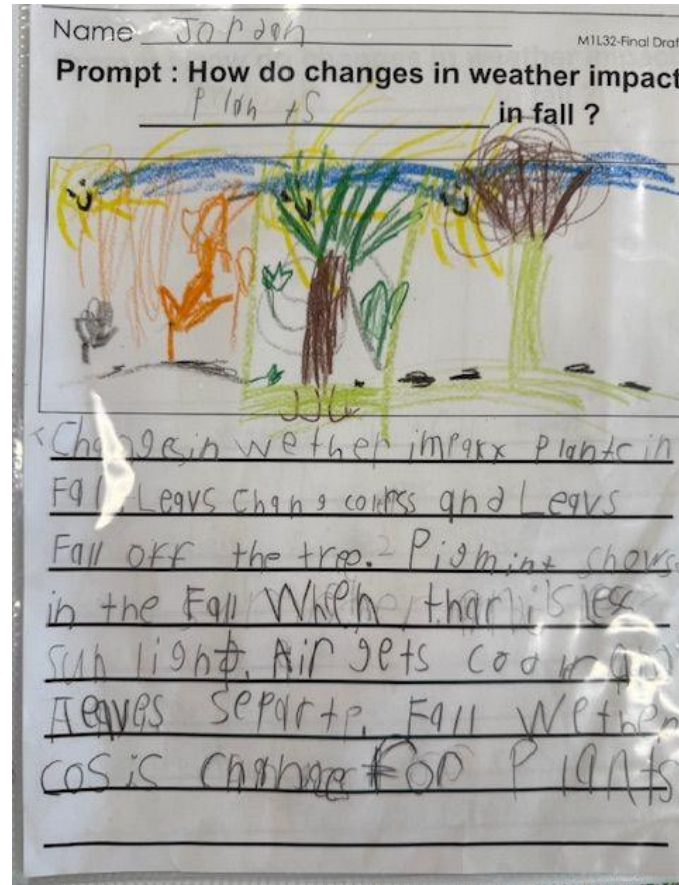 Name Jordan M1L32-Final Draf
Prompt : How do changes in weather impact
Plants in fall ?
Changesin wether impaxx Plants in
Fall Leavs chang and Leavs
Fall off the tree. Pigmint shows
in the Fall When thar is les
sun light. Air gets and
leaves separte. Fall wether
cosis change For Plants